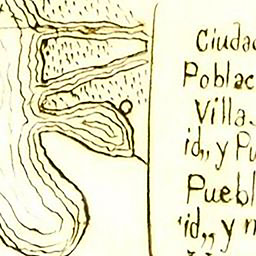 Ciudad
Poblac
Villa.
id,, y Pu
Puebl
id,, y n